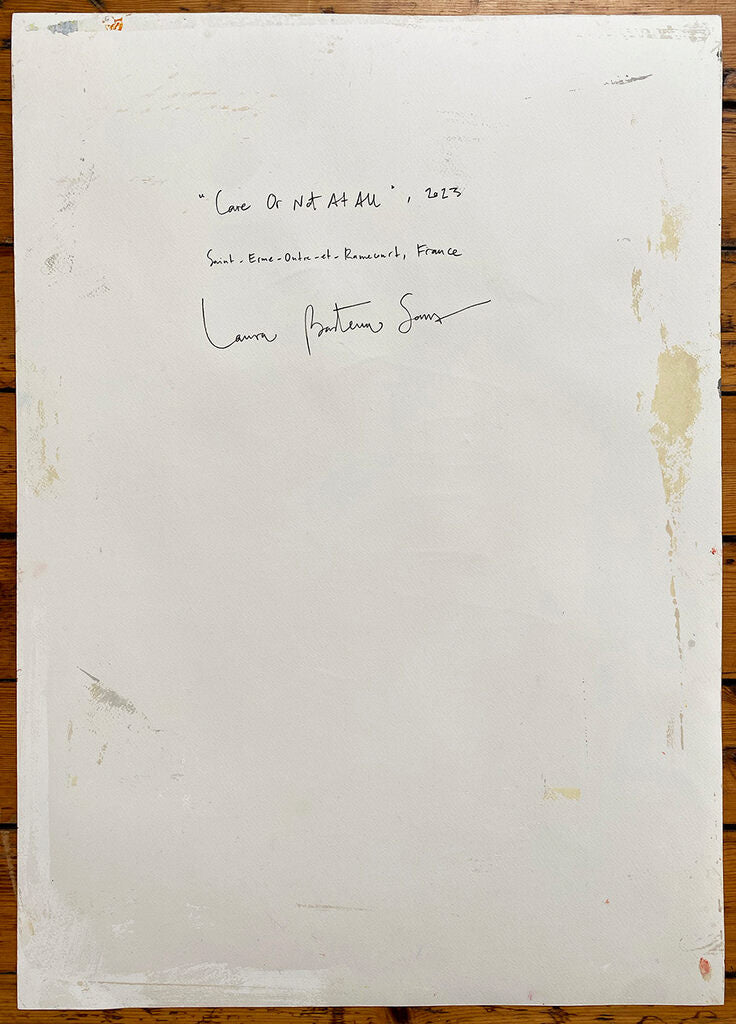 "Care Or Not At All", 2023
Saint-Erme-Outre-et-Ramecourt, France
Laura Basterra Sanz